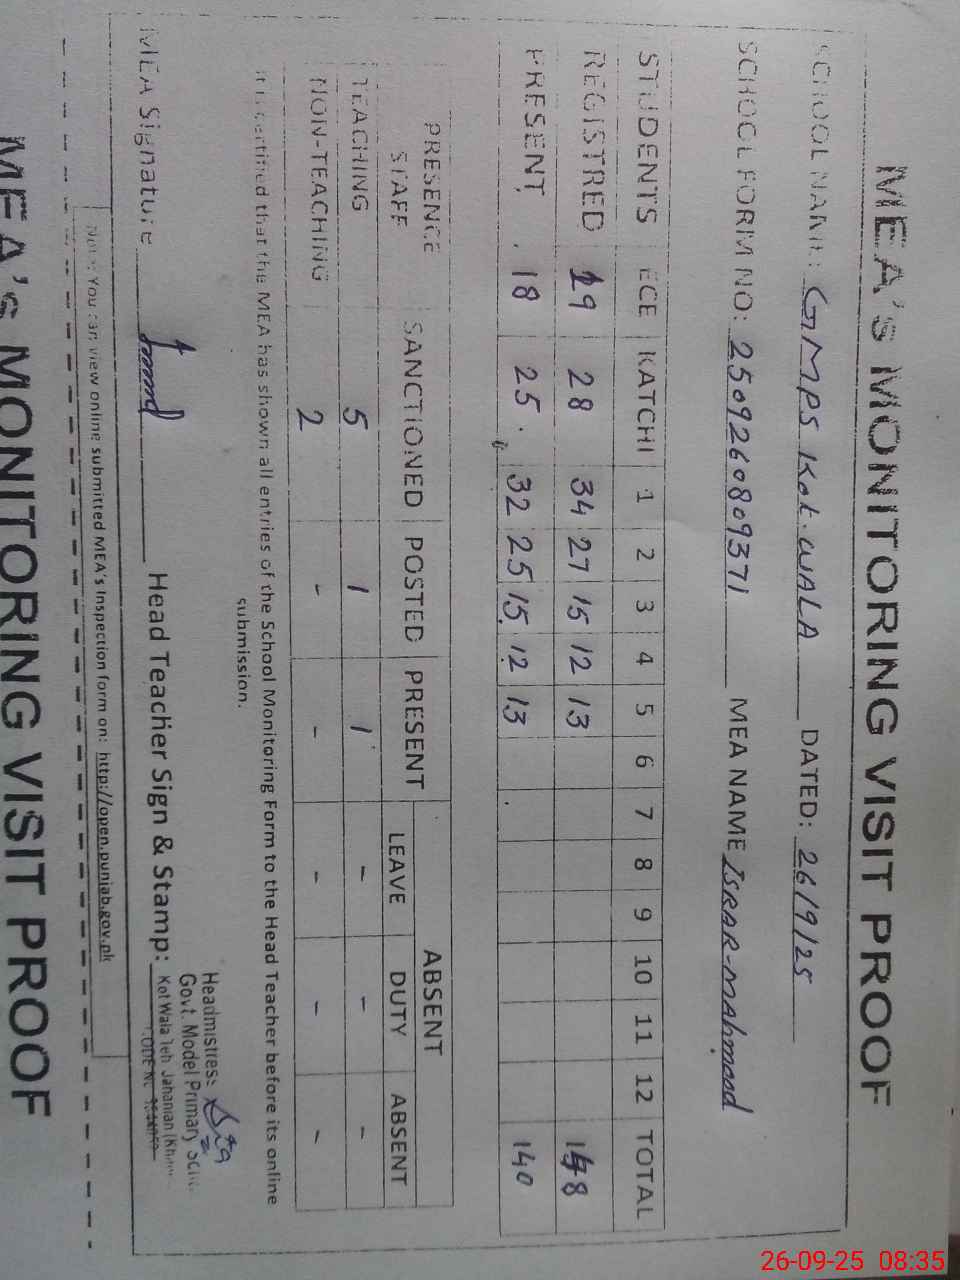 MEA's MONITORING VISIT PROOF
SCHOOL NAME: GMPS Kot. WALA DATED: 26/9/25
SCHOOL FORM NO: 2509260809371 MEA NAME ISRAR-MAHMOOD
STUDENTS ECE KATCHI 1 2 3 4 5 6 7 8 9 10 11 12 TOTAL
REGISTRED 19 28 34 27 15 12 13 148
PRESENT 18 25 32 25 15 12 13 140
PRESENCE STAFF SANCTIONED POSTED PRESENT ABSENT
LEAVE DUTY ABSENT
TEACHING 5 1 1 - - -
NON-TEACHING 2 - - - - -
It is certified that the MEA has shown all entries of the School Monitoring Form to the Head Teacher before its online
submission.
MEA Signature Head Teacher Sign & Stamp:
Headmistress
Govt. Model Primary
Kot Wala Teh Jahanian
Note: You can view online submitted MEA's Inspection form on: http://open.punjab.gov.pk
MEA's MONITORING VISIT PROOF
26-09-25 08:35